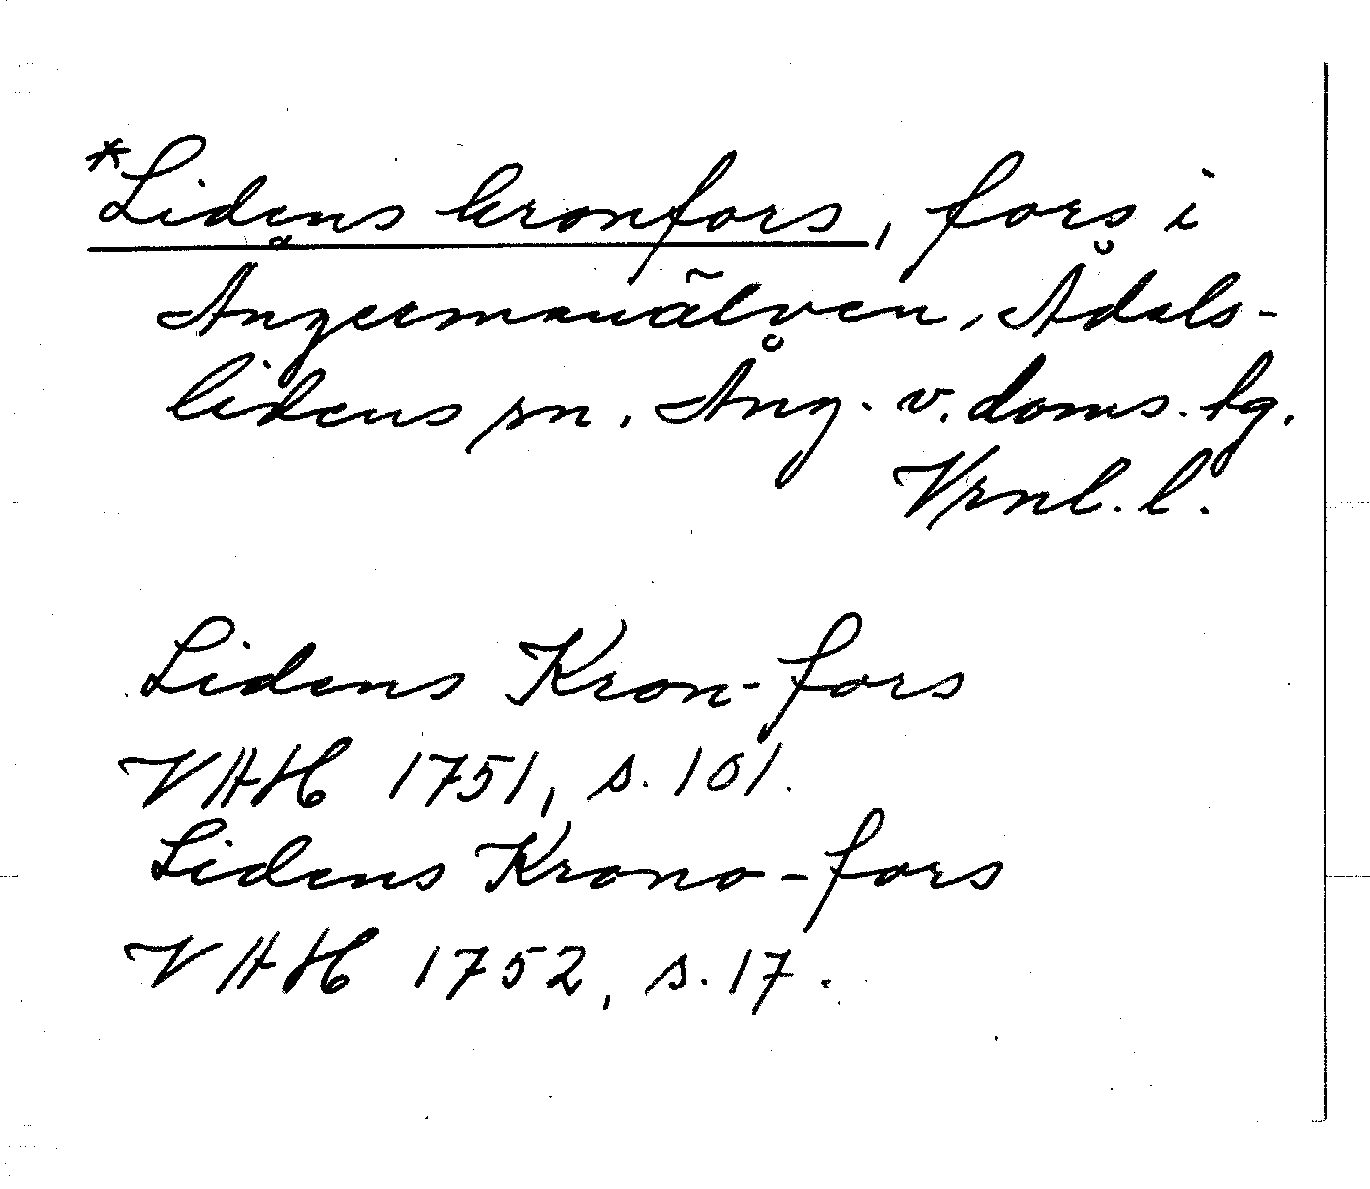 *Lidens kronfors, fors i
Ångermanälven, Ådals-
lidens sn. Ång. v. doms. tg.
Vrnl. l.
Lidens Kron-fors
VHH 1751, s. 101.
Lidens Krono-fors
VHH 1752, s. 17.